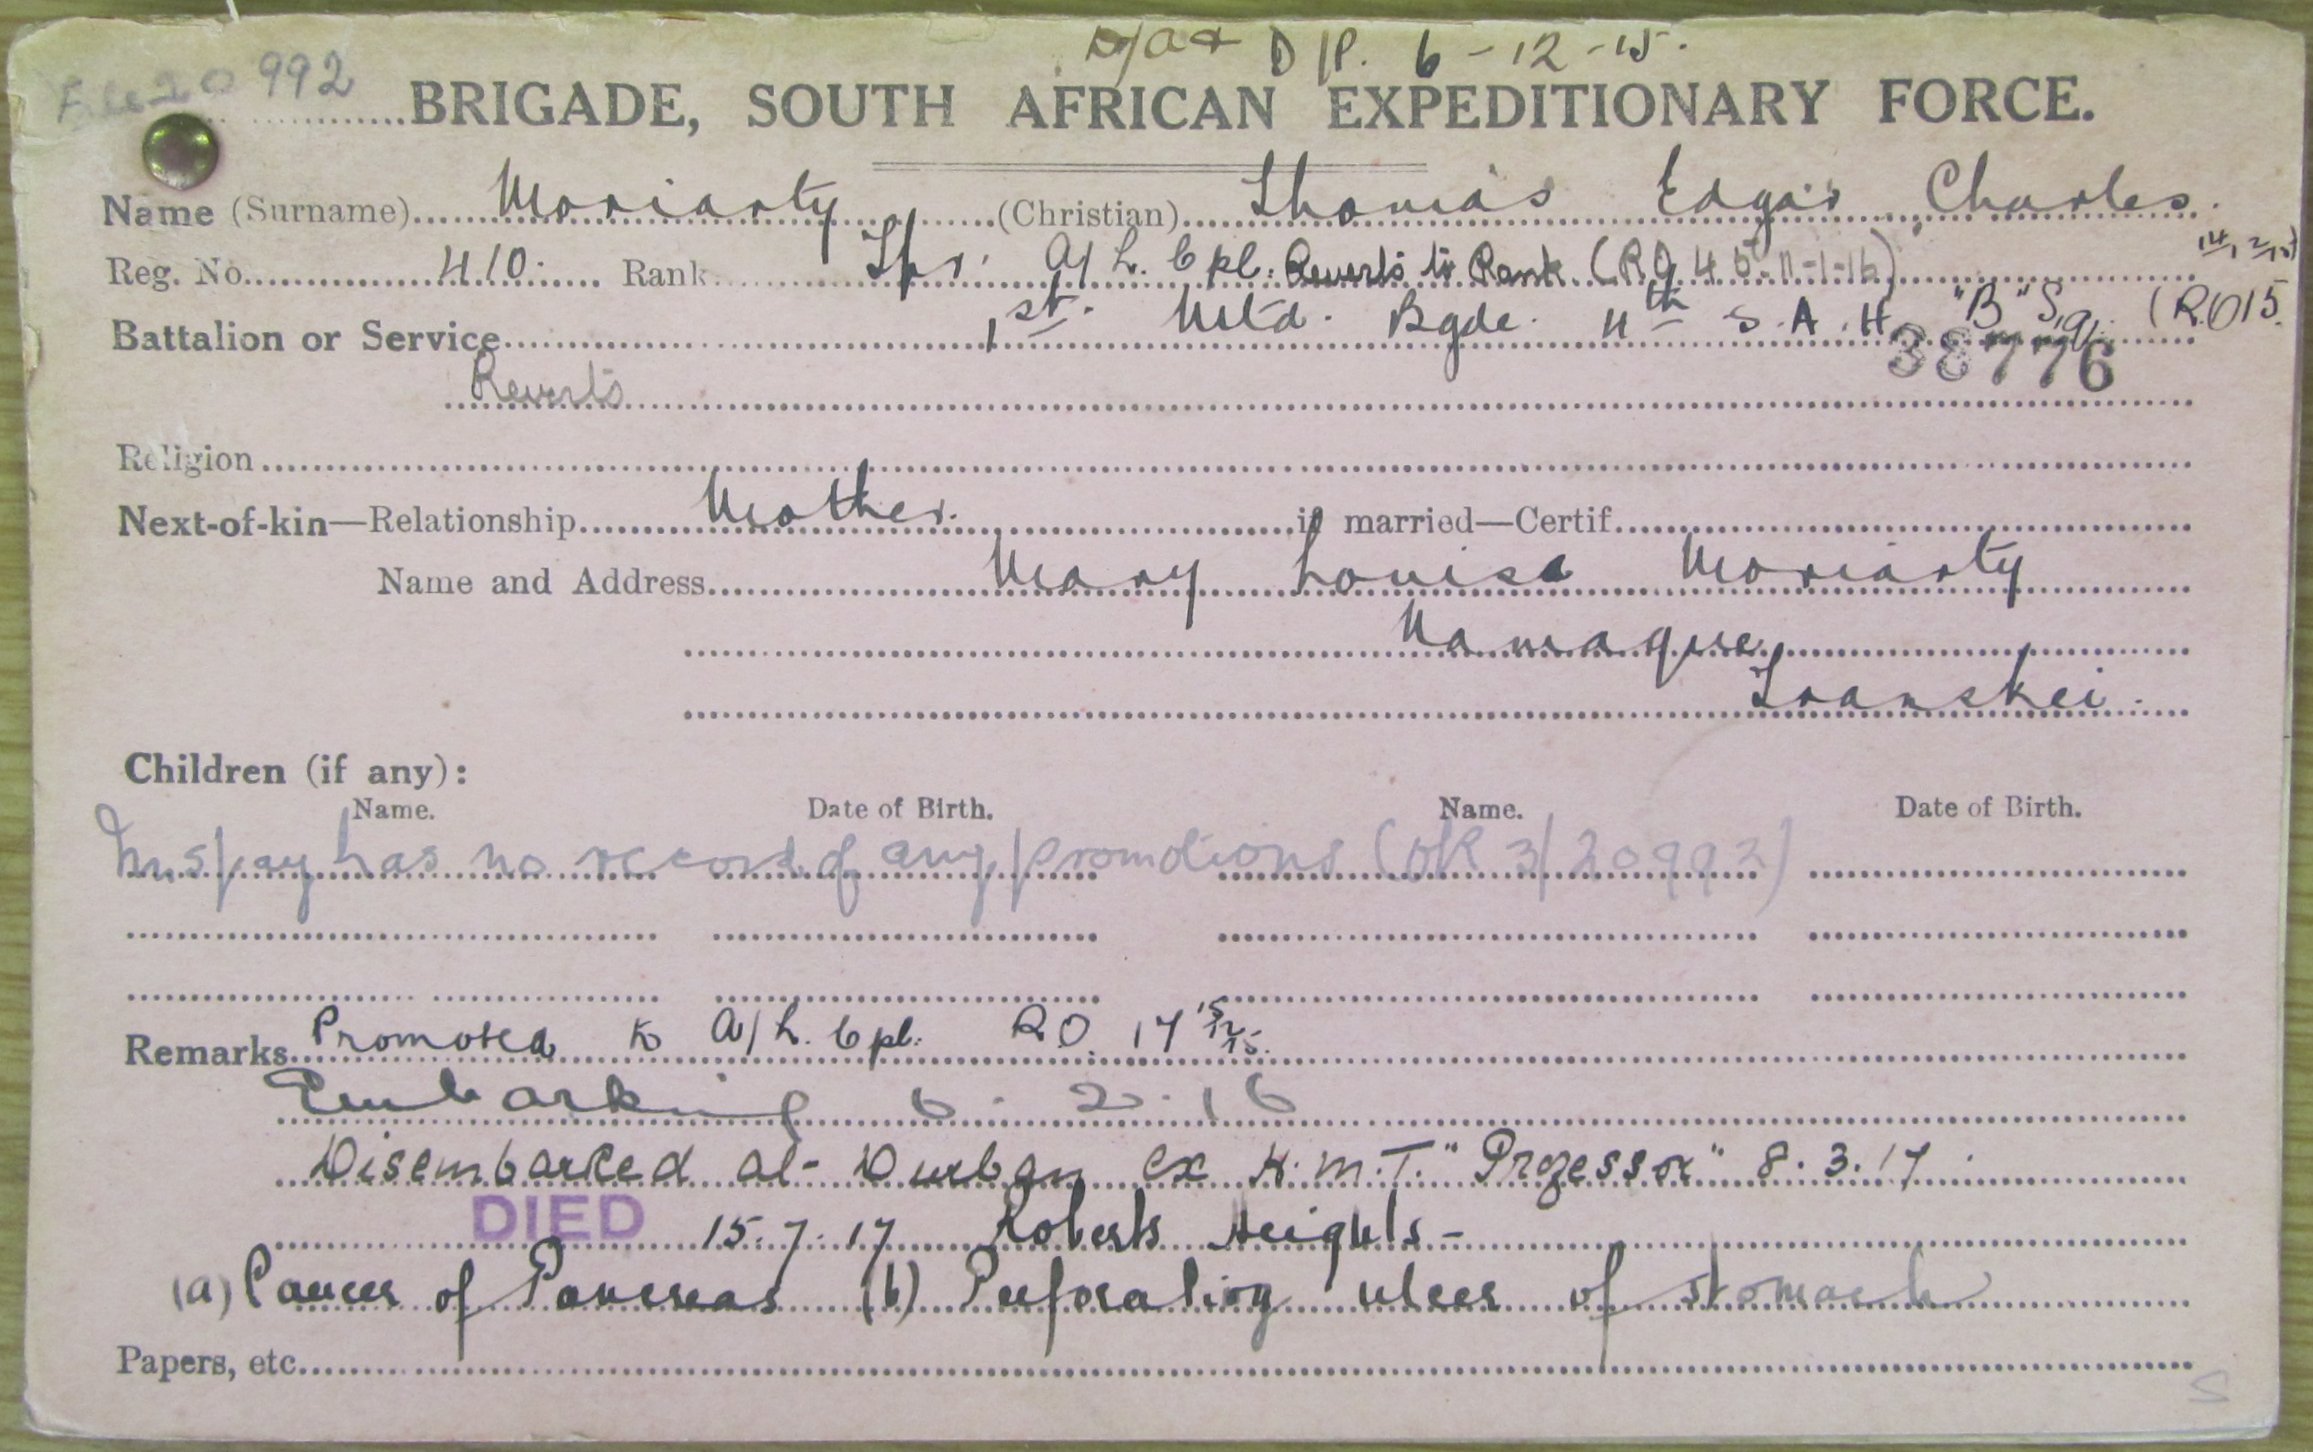 D/A & D/P. 6-12-15.
File 20992
BRIGADE, SOUTH AFRICAN EXPEDITIONARY FORCE.
Name (Surname) Moriarty (Christian) Thomas Edgar Charles.
Reg. No. 410. Rank Tpr. A/L. Cpl. Reverts to Rank (RO 45-11-1-16) 14/12/15
Battalion or Service 1st. Mtd. Bgde. 4th S.A.H. "B" Sq. (R.O 15.
38776
Reverts
Religion
Next-of-kin—Relationship Mother. if married—Certif.
Name and Address Mary Louisa Moriarty
Namaque
Transkei.
Children (if any):
Name. Date of Birth. Name. Date of Birth.
has no record of any promotions (DR 3/20992)
Remarks Promoted to A/L. Cpl. R.O. 17 15/12/15.
Embarking 6.2.16
Disembarked at Durban ex H.M.T. "Professor" 8.3.17.
DIED 15.7.17 Roberts Heights -
(a) Cancer of Pancreas (b) Perforating ulcer of stomach
Papers, etc.